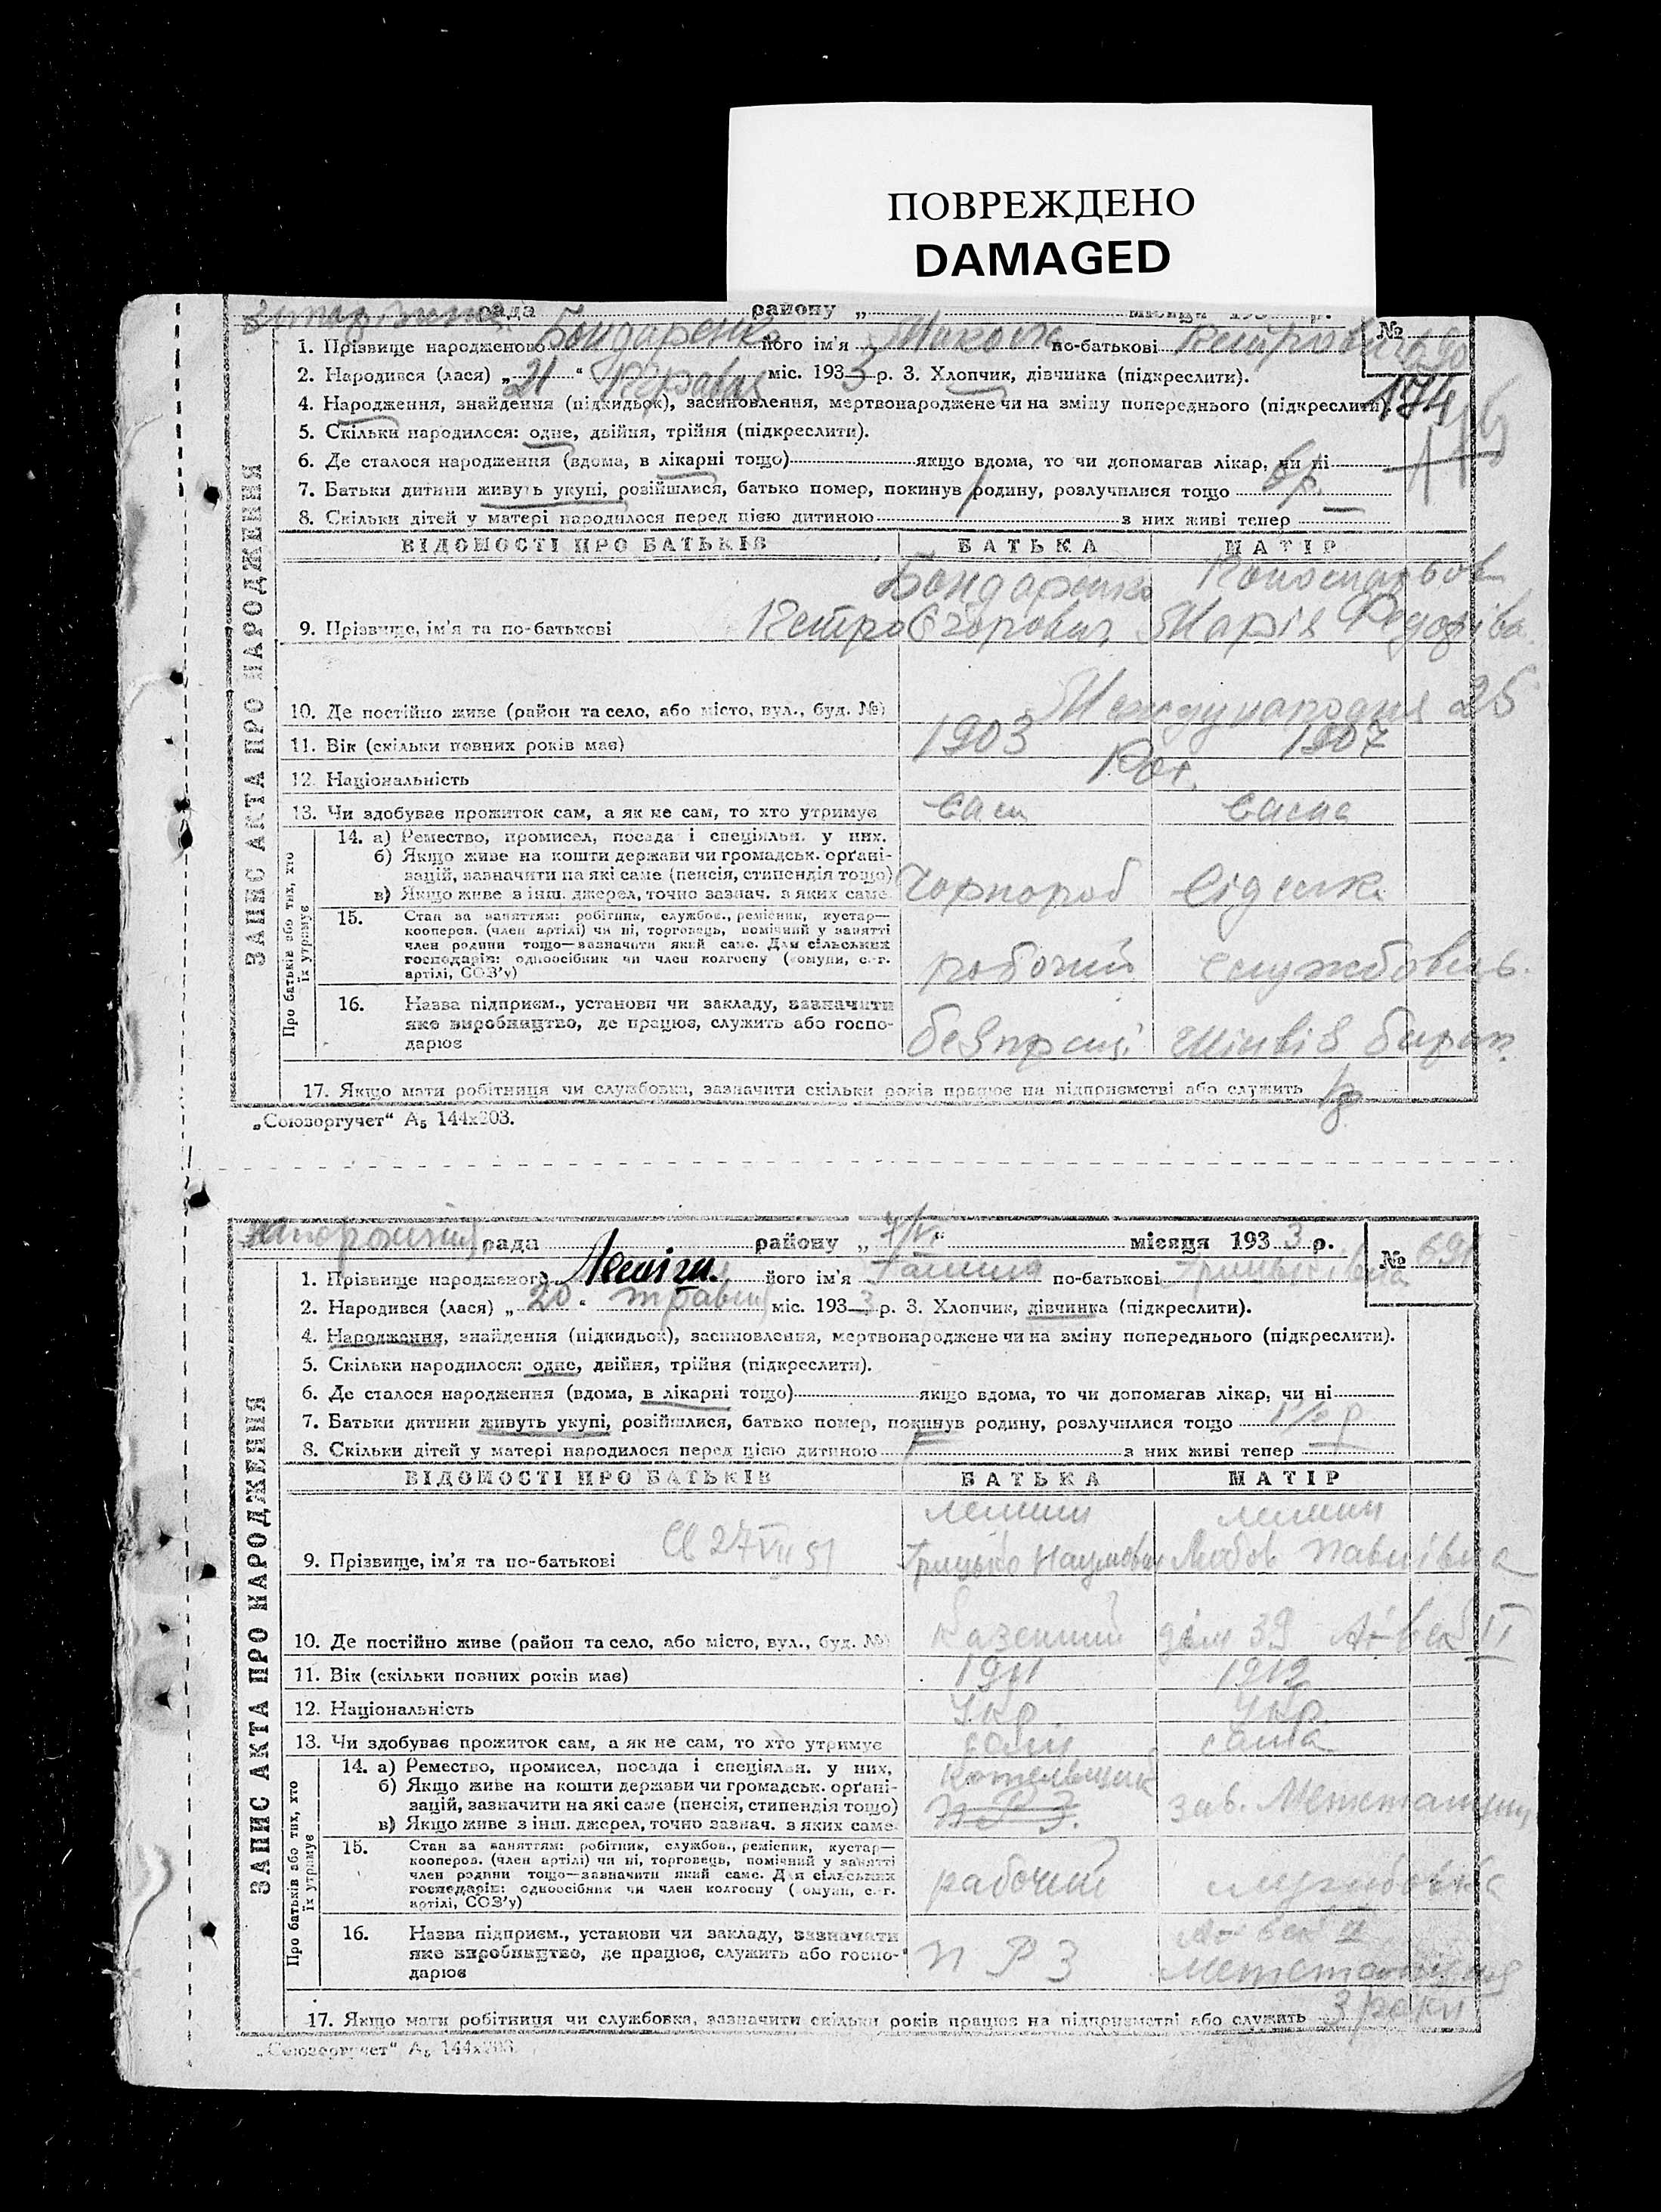 ПОВРЕЖДЕНО
DAMAGED
рада району „ р.
№ 690
1. Прізвище народженого Бондаренко його ім'я Микола по-батькові
174
2. Народився (лася) „21“ Травня міс. 1933 р. 3. Хлопчик, дівчинка (підкреслити).
4. Народження, знайдення (підкидьок), засиновлення, мертвонароджене чи на зміну попереднього (підкреслити).
5. Скільки народилося: одне, двійня, трійня (підкреслити).
6. Де сталося народження (вдома, в лікарні тощо) якщо вдома, то чи допомагав лікар, чи ні
7. Батьки дитини живуть укупі, розійшлися, батько помер, покинув родину, розлучилися тощо
8. Скільки дітей у матері народилося перед цією дитиною з них живі тепер
ЗАПИС АКТА ПРО НАРОДЖЕННЯ
ВІДОМОСТІ ПРО БАТЬКІВ БАТЬКА МАТІР
Бондаренко
9. Прізвище, ім'я та по-батькові Петро Єгорович Марія
10. Де постійно живе (район та село, або місто, вул., буд. №) 25
11. Вік (скільки повних років має) 1903 1907
12. Національність Рос.
13. Чи здобуває прожиток сам, а як не сам, то хто утримує сам сама
Про батьків або тих, хто їх утримує
14. а) Ремество, промисел, посада і спеціяльн. у них.
б) Якщо живе на кошти держави чи громадськ. орґані-
зацій, зазначити на які саме (пенсія, стипендія тощо)
в) Якщо живе з інш. джерел, точно зазнач. з яких саме
Чорнороб
15. Стан за заняттям: робітник, службов., ремісник, кустар—
кооперов. (член артілі) чи ні, торговець, помічний у занятті
член родини тощо—зазначити який саме. Для сільських
господарів: одноосібник чи член колгоспу (комуни, с.-г.
артілі, СОЗ'у)
робочий
16. Назва підприєм., установи чи закладу, зазначити
яке виробництво, де працює, служить або госпо-
дарює
17. Якщо мати робітниця чи службовка, зазначити скільки років працює на підприємстві або служить
„Союзоргучет“ А5 144х203.
рада району „7/VI“ місяця 1933 р.
№ 691
1. Прізвище народженого його ім'я Галина по-батькові Грицьківна
2. Народився (лася) „20“ травня міс. 1933 р. 3. Хлопчик, дівчинка (підкреслити).
4. Народження, знайдення (підкидьок), засиновлення, мертвонароджене чи на зміну попереднього (підкреслити).
5. Скільки народилося: одне, двійня, трійня (підкреслити).
6. Де сталося народження (вдома, в лікарні тощо) якщо вдома, то чи допомагав лікар, чи ні
7. Батьки дитини живуть укупі, розійшлися, батько помер, покинув родину, розлучилися тощо
8. Скільки дітей у матері народилося перед цією дитиною з них живі тепер
ЗАПИС АКТА ПРО НАРОДЖЕННЯ
ВІДОМОСТІ ПРО БАТЬКІВ БАТЬКА МАТІР
9. Прізвище, ім'я та по-батькові Грицько Наумович Любов Павлівна
10. Де постійно живе (район та село, або місто, вул., буд. №) Казенний дім 39
11. Вік (скільки повних років має) 1911 1912
12. Національність Укр Укр
13. Чи здобуває прожиток сам, а як не сам, то хто утримує сам сама
Про батьків або тих, хто їх утримує
14. а) Ремество, промисел, посада і спеціяльн. у них,
б) Якщо живе на кошти держави чи громадськ. орґані-
зацій, зазначити на які саме (пенсія, стипендія тощо)
в) Якщо живе з інш. джерел, точно зазнач. з яких саме
15. Стан за заняттям: робітник, службов., ремісник, кустар—
кооперов. (член артілі) чи ні, торговець, помічний у занятті
член родини тощо—зазначити який саме. Для сільських
господарів: одноосібник чи член колгоспу (комуни, с.-г.
артілі, СОЗ'у)
рабочий службовка
16. Назва підприєм., установи чи закладу, зазначити
яке виробництво, де працює, служить або госпо-
дарює
П Р З
17. Якщо мати робітниця чи службовка, зазначити скільки років працює на підприємстві або служить 3 роки
„Союзоргучет“ А5 144х203.